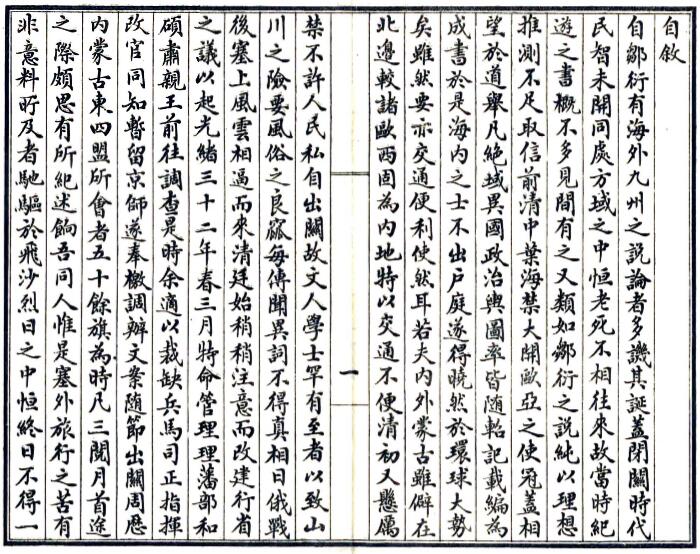 自敘
自鄒衍有海外九州之說論者多譏其誕蓋閉關時代
民智未開同處方域之中恒老死不相往來故當時紀
遊之書概不多見間有之又類如鄒衍之說純以理想
推測不足取信前清中葉海禁大開歐亞之使冠蓋相
望於道舉凡絕域異國政治輿圖率皆隨軺記載編為
成書於是海內之士不出戶庭遂得曉然於環球大勢
矣雖然要亦交通便利使然耳若夫內外蒙古雖僻在
北邊較諸歐西固為內地特以交通不便清初又懸厲
一
禁不許人民私自出關故文人學士罕有至者以致山
川之險要風俗之良窳每傳聞異詞不得真相日俄戰
後塞上風雲相逼而來清廷始稍稍注意而改建行省
之議以起光緒三十二年春三月特命管理理藩部和
碩肅親王前往調查是時余適以裁缺兵馬司正指揮
改官同知暫留京師遂奉檄調辦文案隨節出關周歷
內蒙古東四盟所會者五十餘旗為時凡三閱月首途
之際頗思有所紀述餉吾同人惟是塞外旅行之苦有
非意料所及者馳驅於飛沙烈日之中恒終日不得一